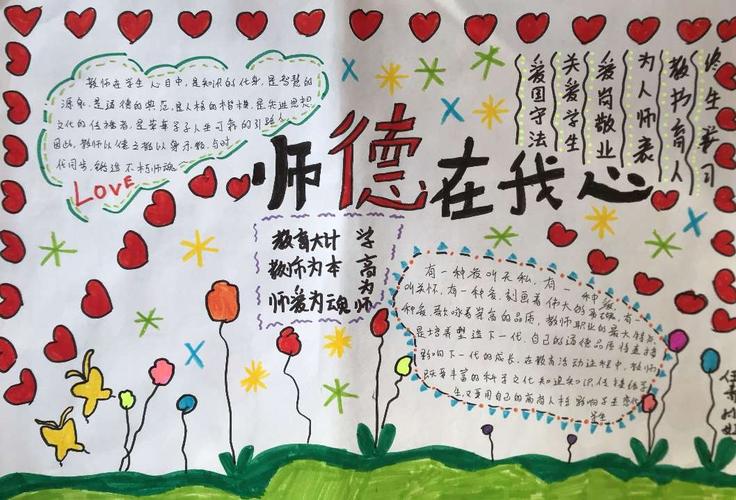 教师在学生心目中,是知识的化身,是智慧的
源泉,是道德的典范,是人格的楷模,是先进思想
文化的传播者,是莘莘学子人生可靠的引路人
因此,教师以德立教以身示教,与时
代同步,铸造不朽师魂
LOVE
师德在我心
爱国守法
关爱学生
爱岗敬业
为人师表
教书育人
终生学习
教育大计
教师为本
师爱为魂
学高为师
有一种爱叫无私,有一种爱
叫关怀,有一种爱,刻画着伟大的灵魂,有一
种爱,歌咏着崇高的品质,教师职业的最大特点
是培养塑造下一代,自己的道德品质将直接
影响下一代的成长,在教育活动过程中,教师
既要丰富的科学文化知识传授给学
生,又要用自己的高尚人格影响学生感化
学生